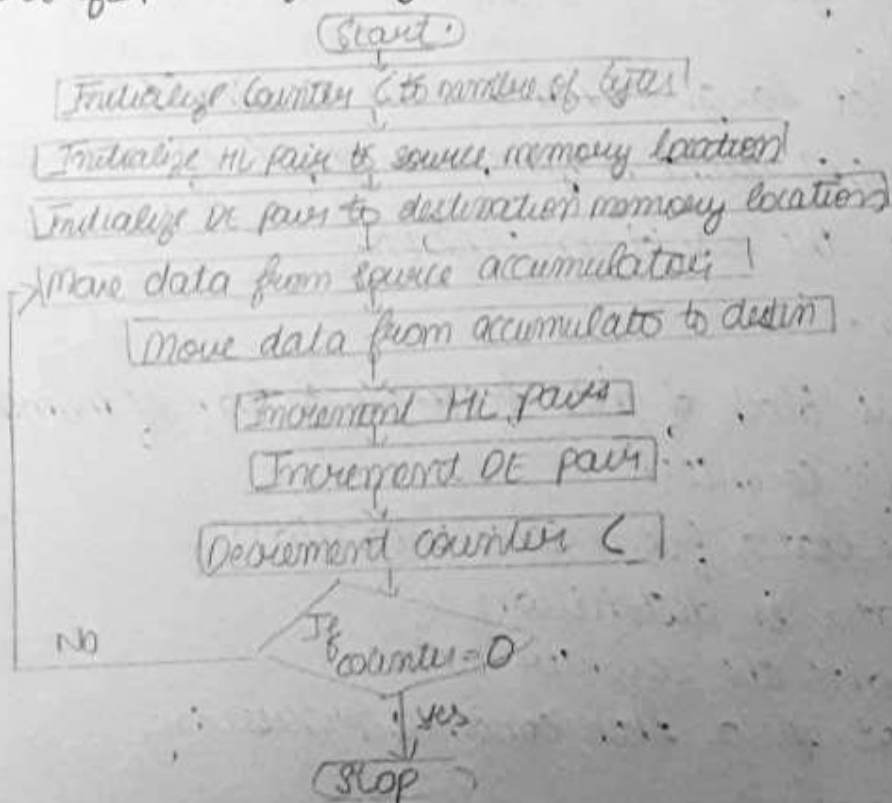 Start.
Initialize Counter C to number of bytes
Initialize HL pair to source memory location
Initialize DE pair to destination memory location
Move data from source accumulator
Move data from accumulato to destin
Increment HL pair
Increment DE pair
Decrement counter C
If
No
counter=0
yes
Stop